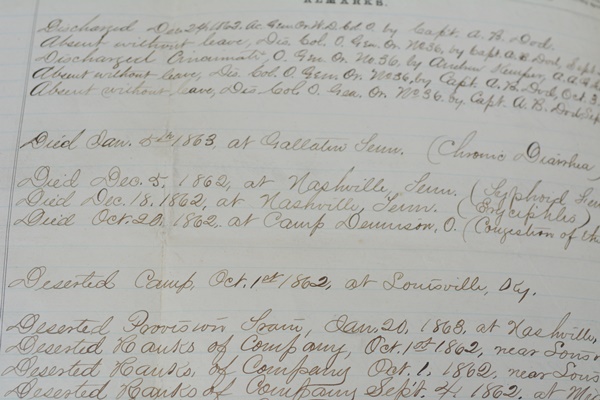 REMARKS.
Discharged Dec. 24, 1862. Ac. Gen. Or. Col. O. by Capt. A. B. Dod.
Absent without leave, Dis. Col. O. Gen. Or. No 36, by Capt. A. B. Dod, Sept.
Discharged Cincinnati, O. Gen. Or. No. 36, by Andrew Kemper, A. A.
Absent without leave, Dis. Col. O. Gen. Or. No 36, by Capt. A. B. Dod, Oct. 3
Absent without leave, Dis. Col. O. Gen. Or. No 36. by Capt. A. B. Dod, Sep
Died Jan. 5th 1863, at Gallatin Tenn. (Chronic Diarrhea
Died Dec. 5, 1862, at Nashville, Tenn. (Typhoid Fe
Died Dec. 18, 1862, at Nashville, Tenn. (Erycipelas)
Died Oct. 20, 1862, at Camp Dennison, O. (Congestion of the
Deserted Camp, Oct. 1st 1862, at Louisville, Ky.
Deserted Provision Train, Jan. 20, 1863, at Nashville,
Deserted Ranks of Company, Oct. 1st 1862, near Louis
Deserted Ranks, of Company Oct. 1, 1862, near Louis
Deserted Ranks of Company Sept. 4, 1862, at